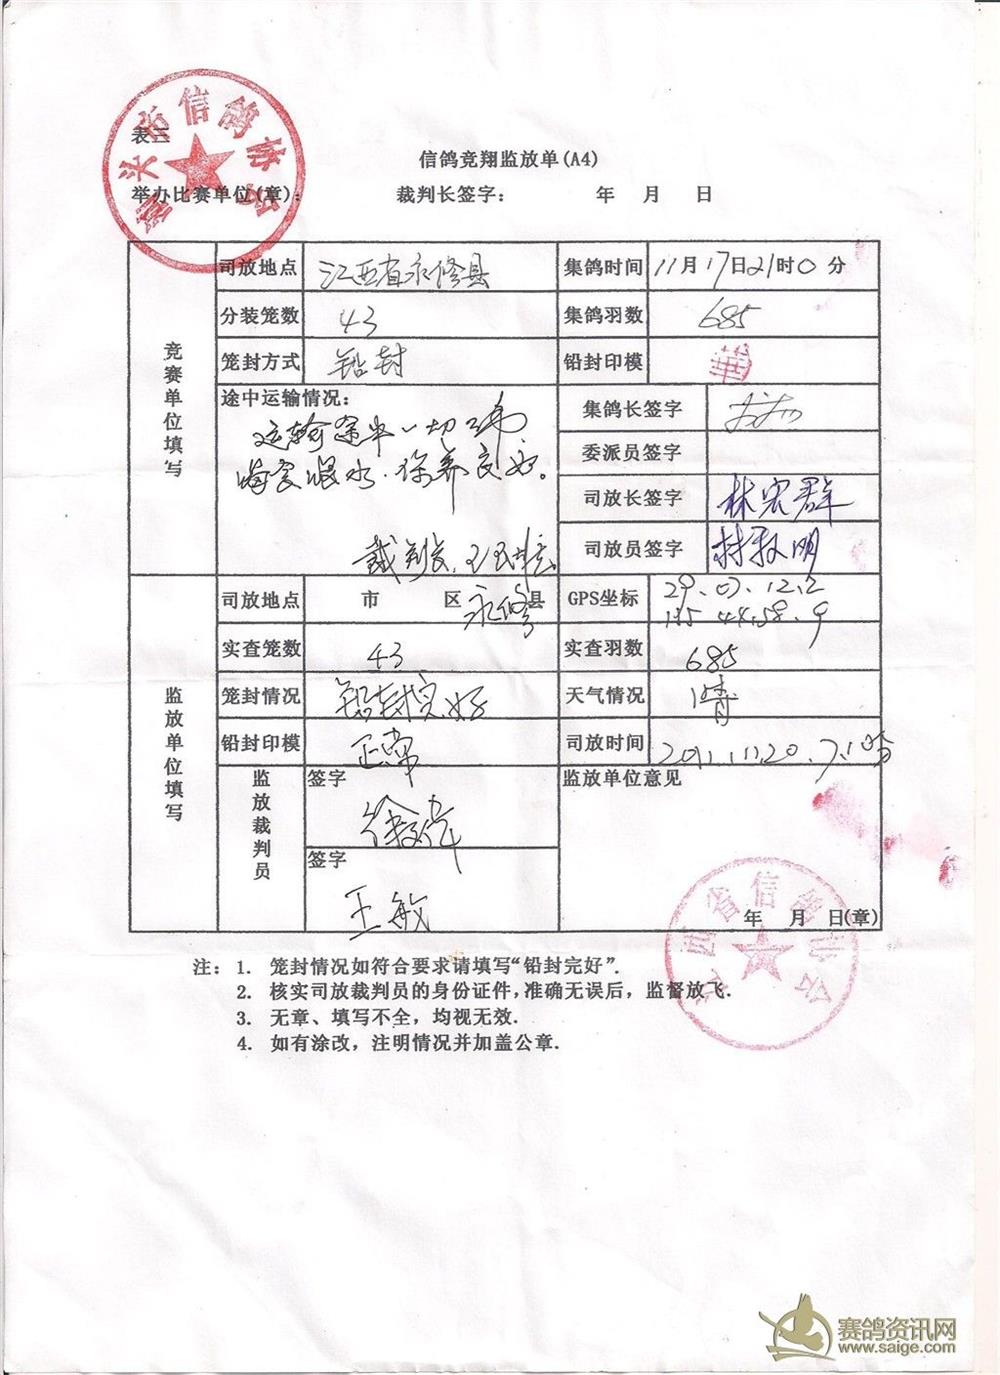 表三
信鸽竞翔监放单(A4)
举办比赛单位(章)： 裁判长签字： 年 月 日
信鸽协会
竞赛单位填写
司放地点 江西省永修县 集鸽时间 11月17日21时0分
分装笼数 43 集鸽羽数 685
笼封方式 铅封 铅封印模
途中运输情况：
运输途中一切正常
喂食喂水.保养良好。
裁判长.
集鸽长签字
委派员签字
司放长签字 林宏群
司放员签字
监放单位填写
司放地点 市 区 永修县 GPS坐标 29.07.12.2
115 44.58.9
实查笼数 43 实查羽数 685
笼封情况 铅封完好 天气情况 晴
铅封印模 正常 司放时间 2011.11.20.7.10分
监放裁判员
签字
签字
王敏
监放单位意见
年 月 日(章)
江西省信鸽协会
注： 1. 笼封情况如符合要求请填写“铅封完好”.
2. 核实司放裁判员的身份证件,准确无误后，监督放飞.
3. 无章、填写不全，均视无效.
4. 如有涂改，注明情况并加盖公章.
赛鸽资讯网
www.saige.com